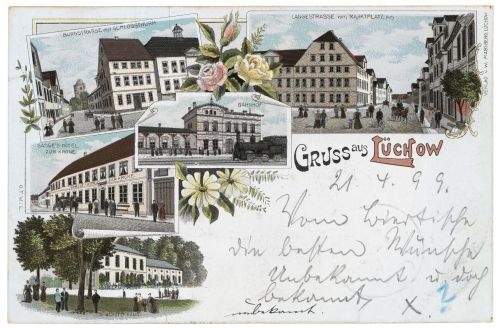 BURGSTRASSE MIT SCHLOSSTHURM
LANGESTRASSE VOM MARKTPLATZ AUS
BAHNHOF
ZUR KRONE
GRUSS AUS LÜCHOW
21. 4. 99.
Vom
die besten Wünsche
Unbekannt u. doch
bekannt. X. ?
unbekannt.